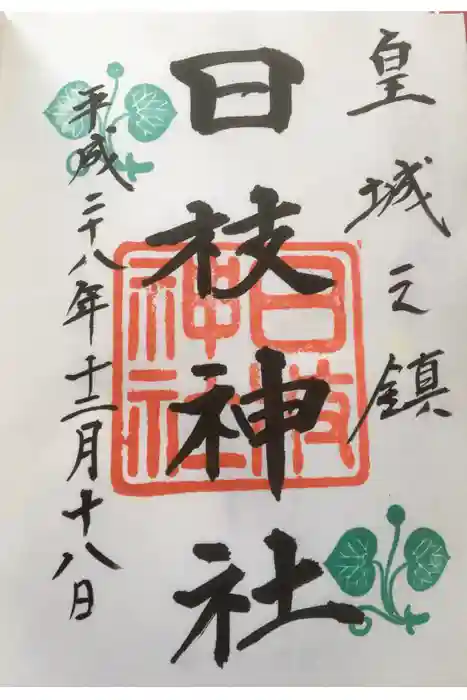 皇城之鎮
日枝神社
平成二十八年十二月十八日
日枝神社